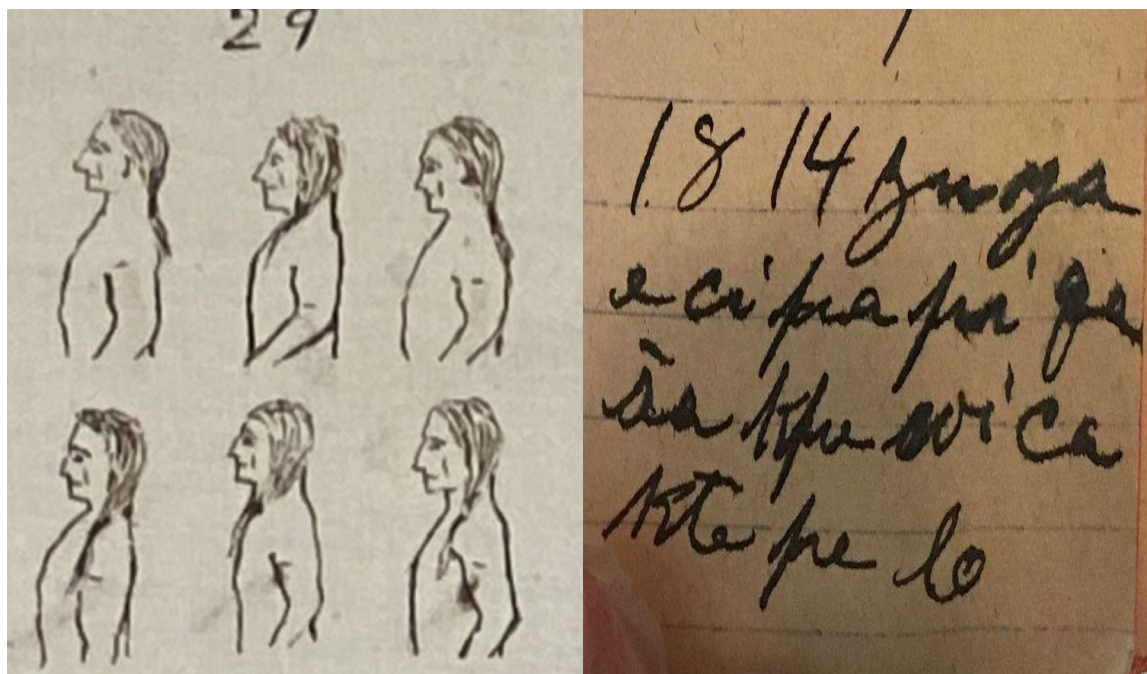 29
1814 zuya
e ci pa pi
ša kpe wi ca
kte pe lo